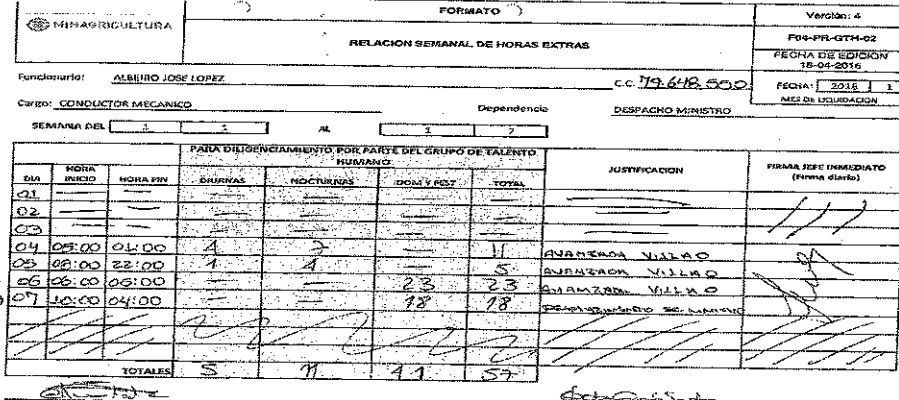 MINAGRICULTURA
FORMATO
RELACION SEMANAL DE HORAS EXTRAS
Versión: 4
F04-PR-GTH-02
FECHA DE EDICIÓN
18-04-2016
Funcionario: ALBEIRO JOSE LOPEZ C.C. 79.648.550
FECHA: 2018 1
MES DE LIQUIDACIÓN
Cargo: CONDUCTOR MECANICO Dependencia DESPACHO MINISTRO
SEMANA DEL 1 1 AL 1 7
PARA DILIGENCIAMIENTO POR PARTE DEL GRUPO DE TALENTO HUMANO
DIA HORA INICIO HORA FIN DIURNAS NOCTURNAS DOM Y FEST TOTAL JUSTIFICACION FIRMA JEFE INMEDIATO (Firma diario)
01 — — — — — — —
02 — — — — — — —
03 — — — — — — —
04 05:00 01:00 4 7 — 11 AVANZADA VILLAO
05 08:00 22:00 1 4 — 5 AVANZADA VILLAO
06 06:00 05:00 — — 23 23 AVANZADA VILLAO
07 10:00 04:00 — — 18 18
TOTALES 5 11 41 57